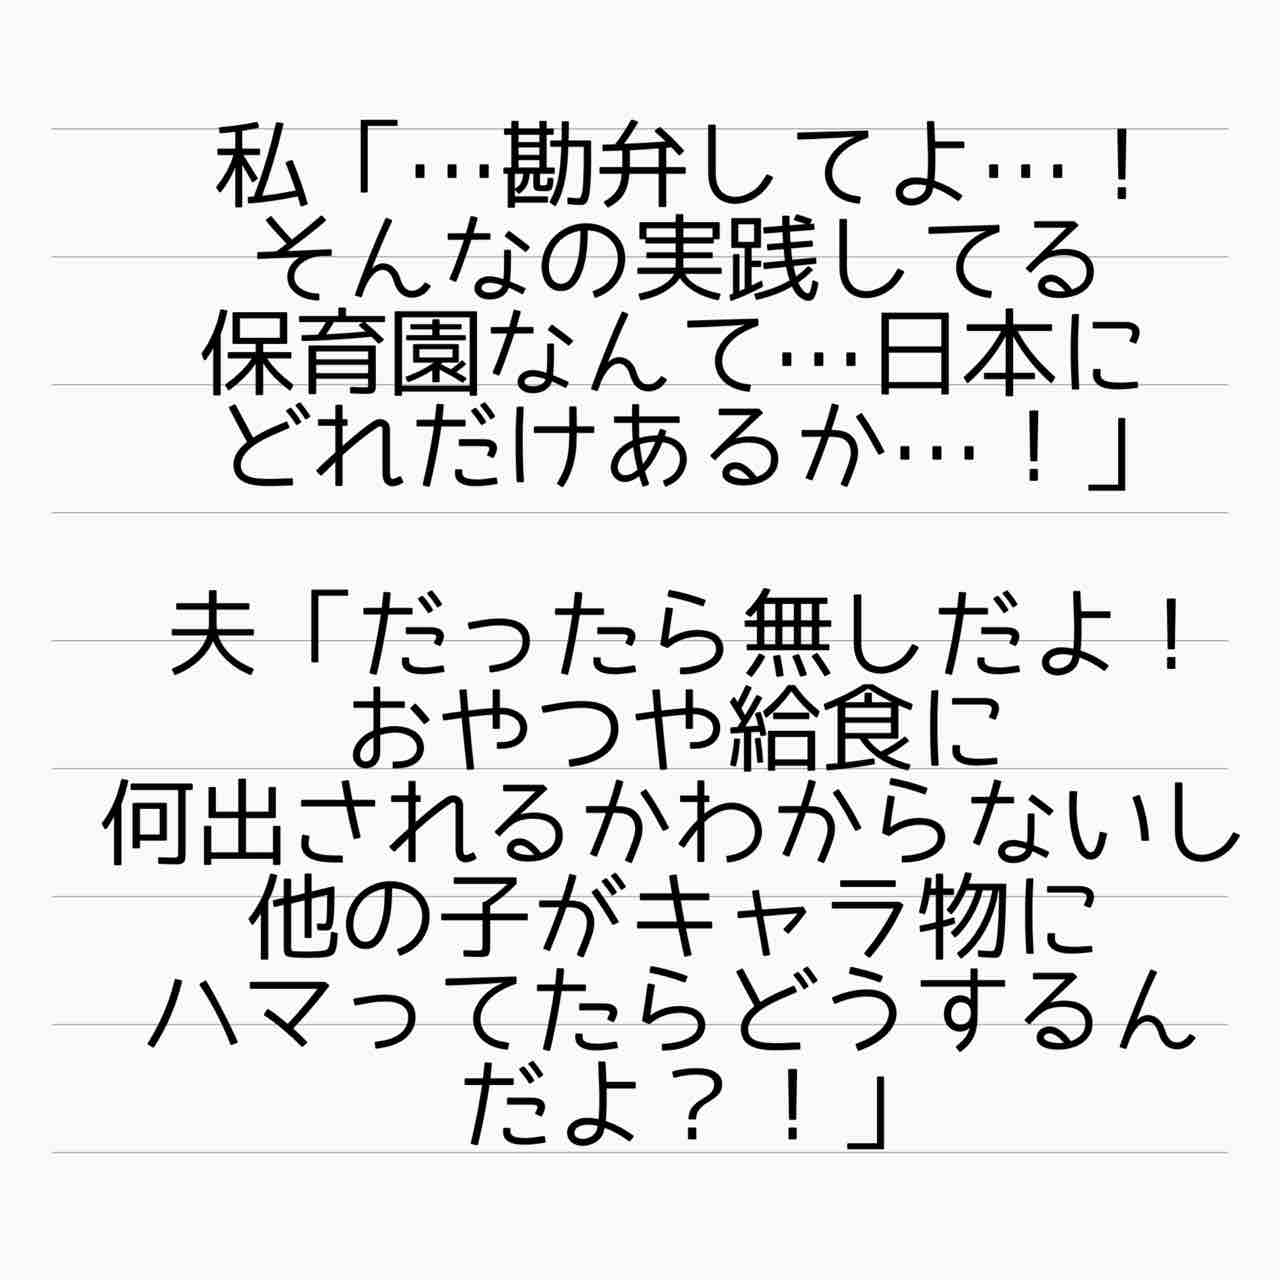 私「…勘弁してよ…！
そんなの実践してる
保育園なんて…日本に
どれだけあるか…！」
夫「だったら無しだよ！
おやつや給食に
何出されるかわからないし
他の子がキャラ物に
ハマってたらどうするん
だよ？！」